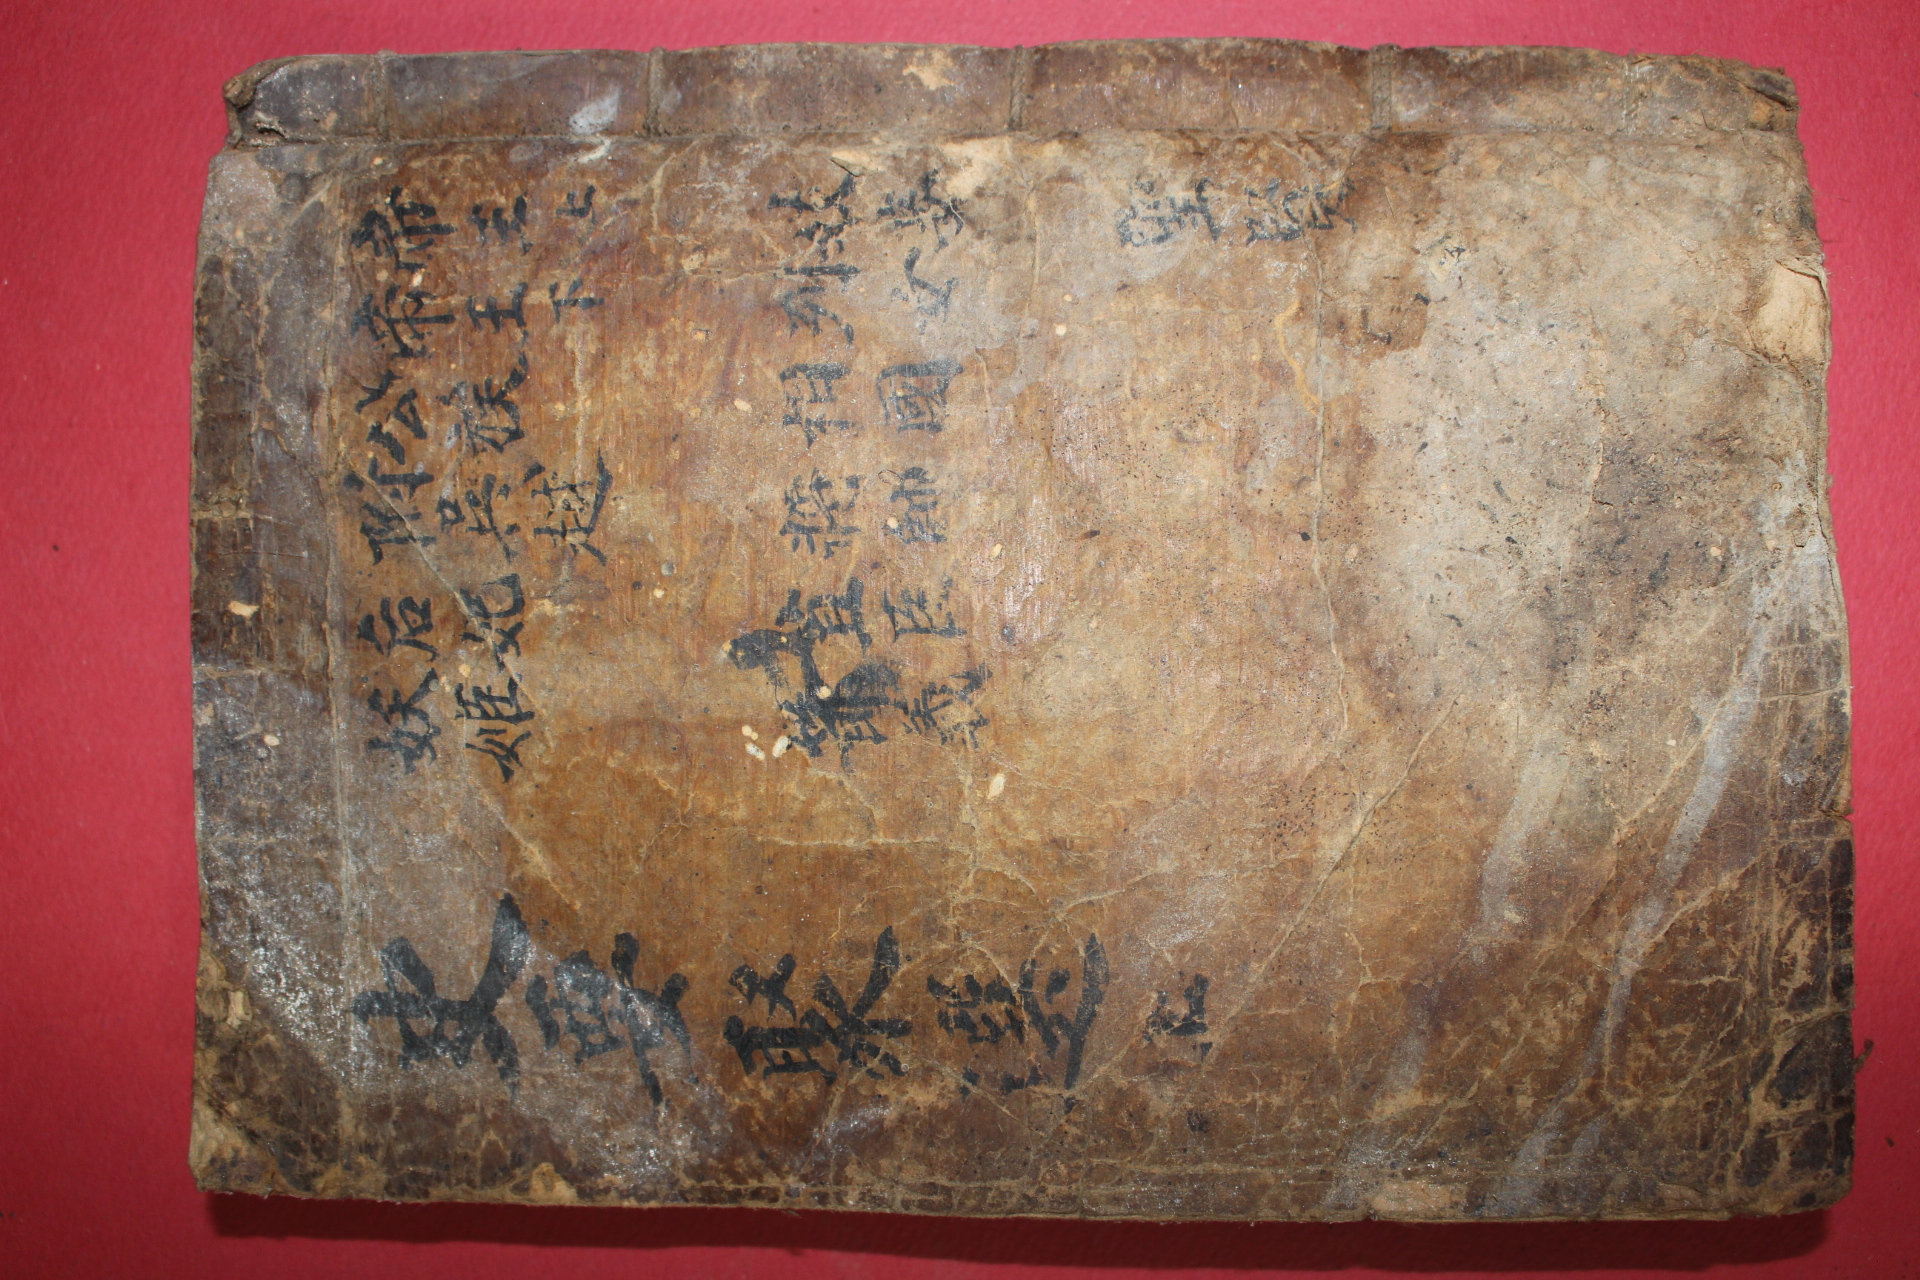 帝王上
帝王下
公族
附吳越
后妃
妖姬
妓妾
列女
相國
將帥
直臣
節義
聖賢
史要聚選 上